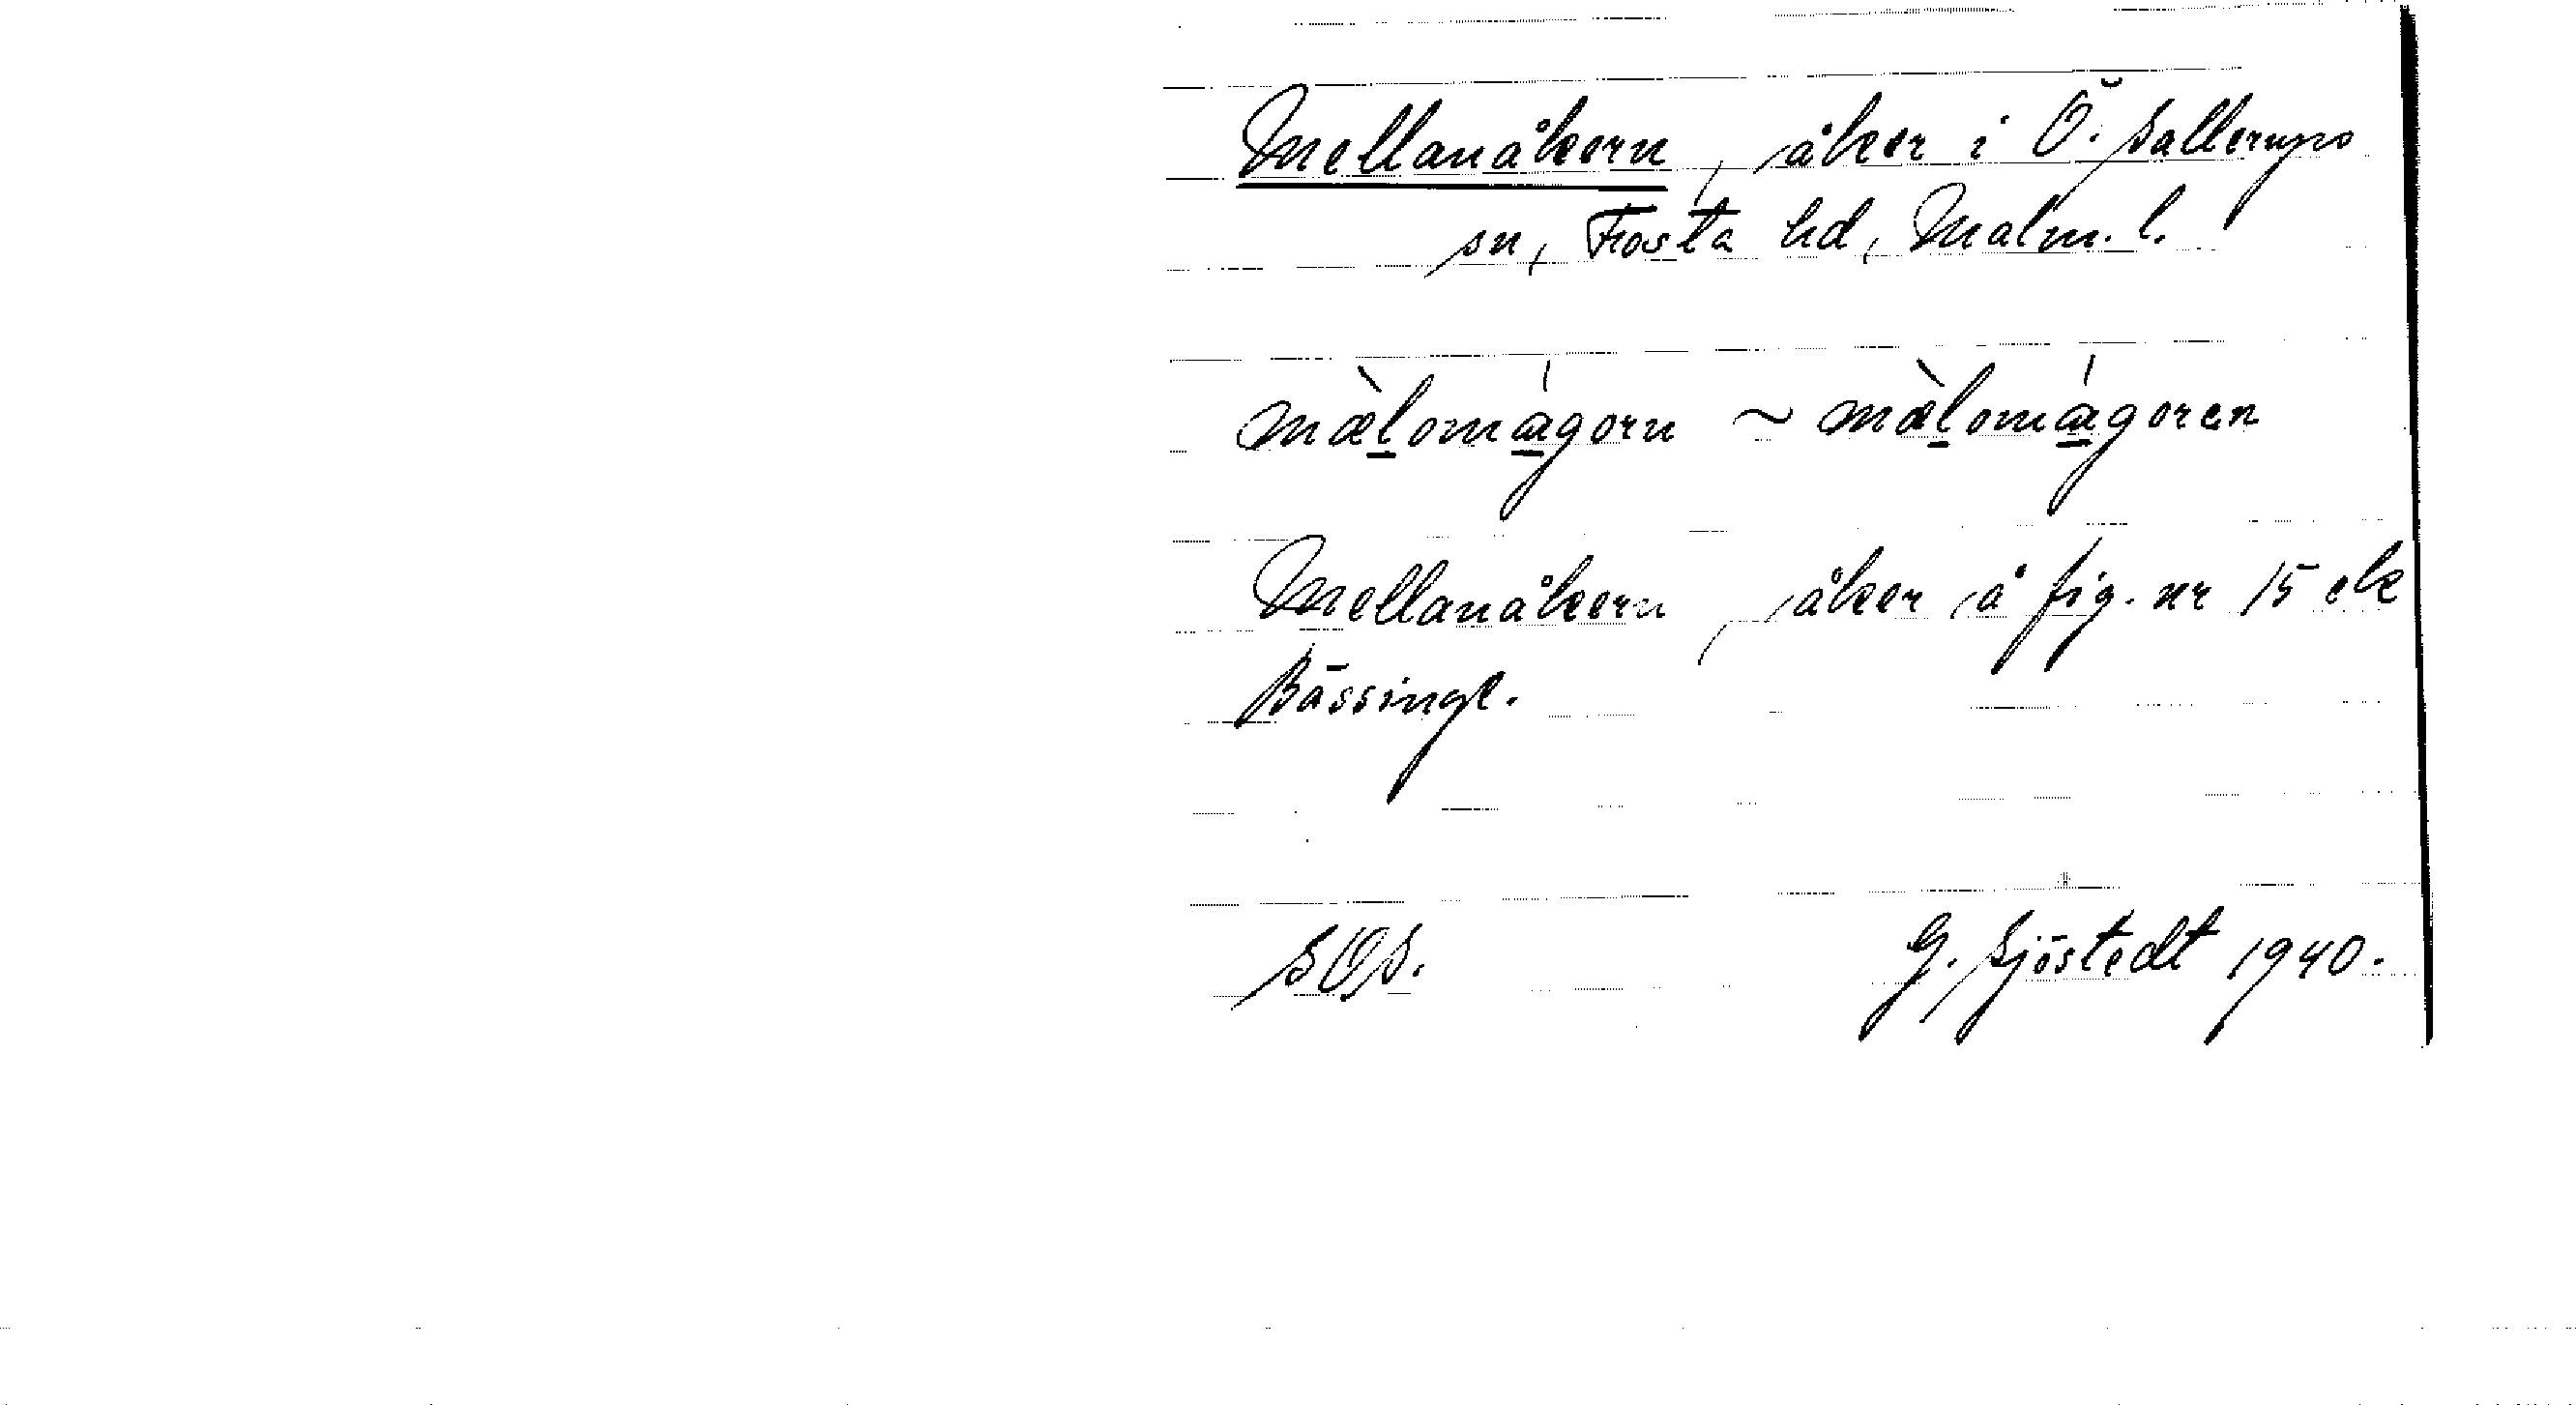 Mellanåkern, åker i Ö. Sallerups
sn, Frosta hd, Malm. l.
mæ̀lomágorn ~ mæ̀lomágoren
Mellanåkern, åker å fig. nr 15 ek
Bässingl.
SOS.
G. Sjöstedt 1940.